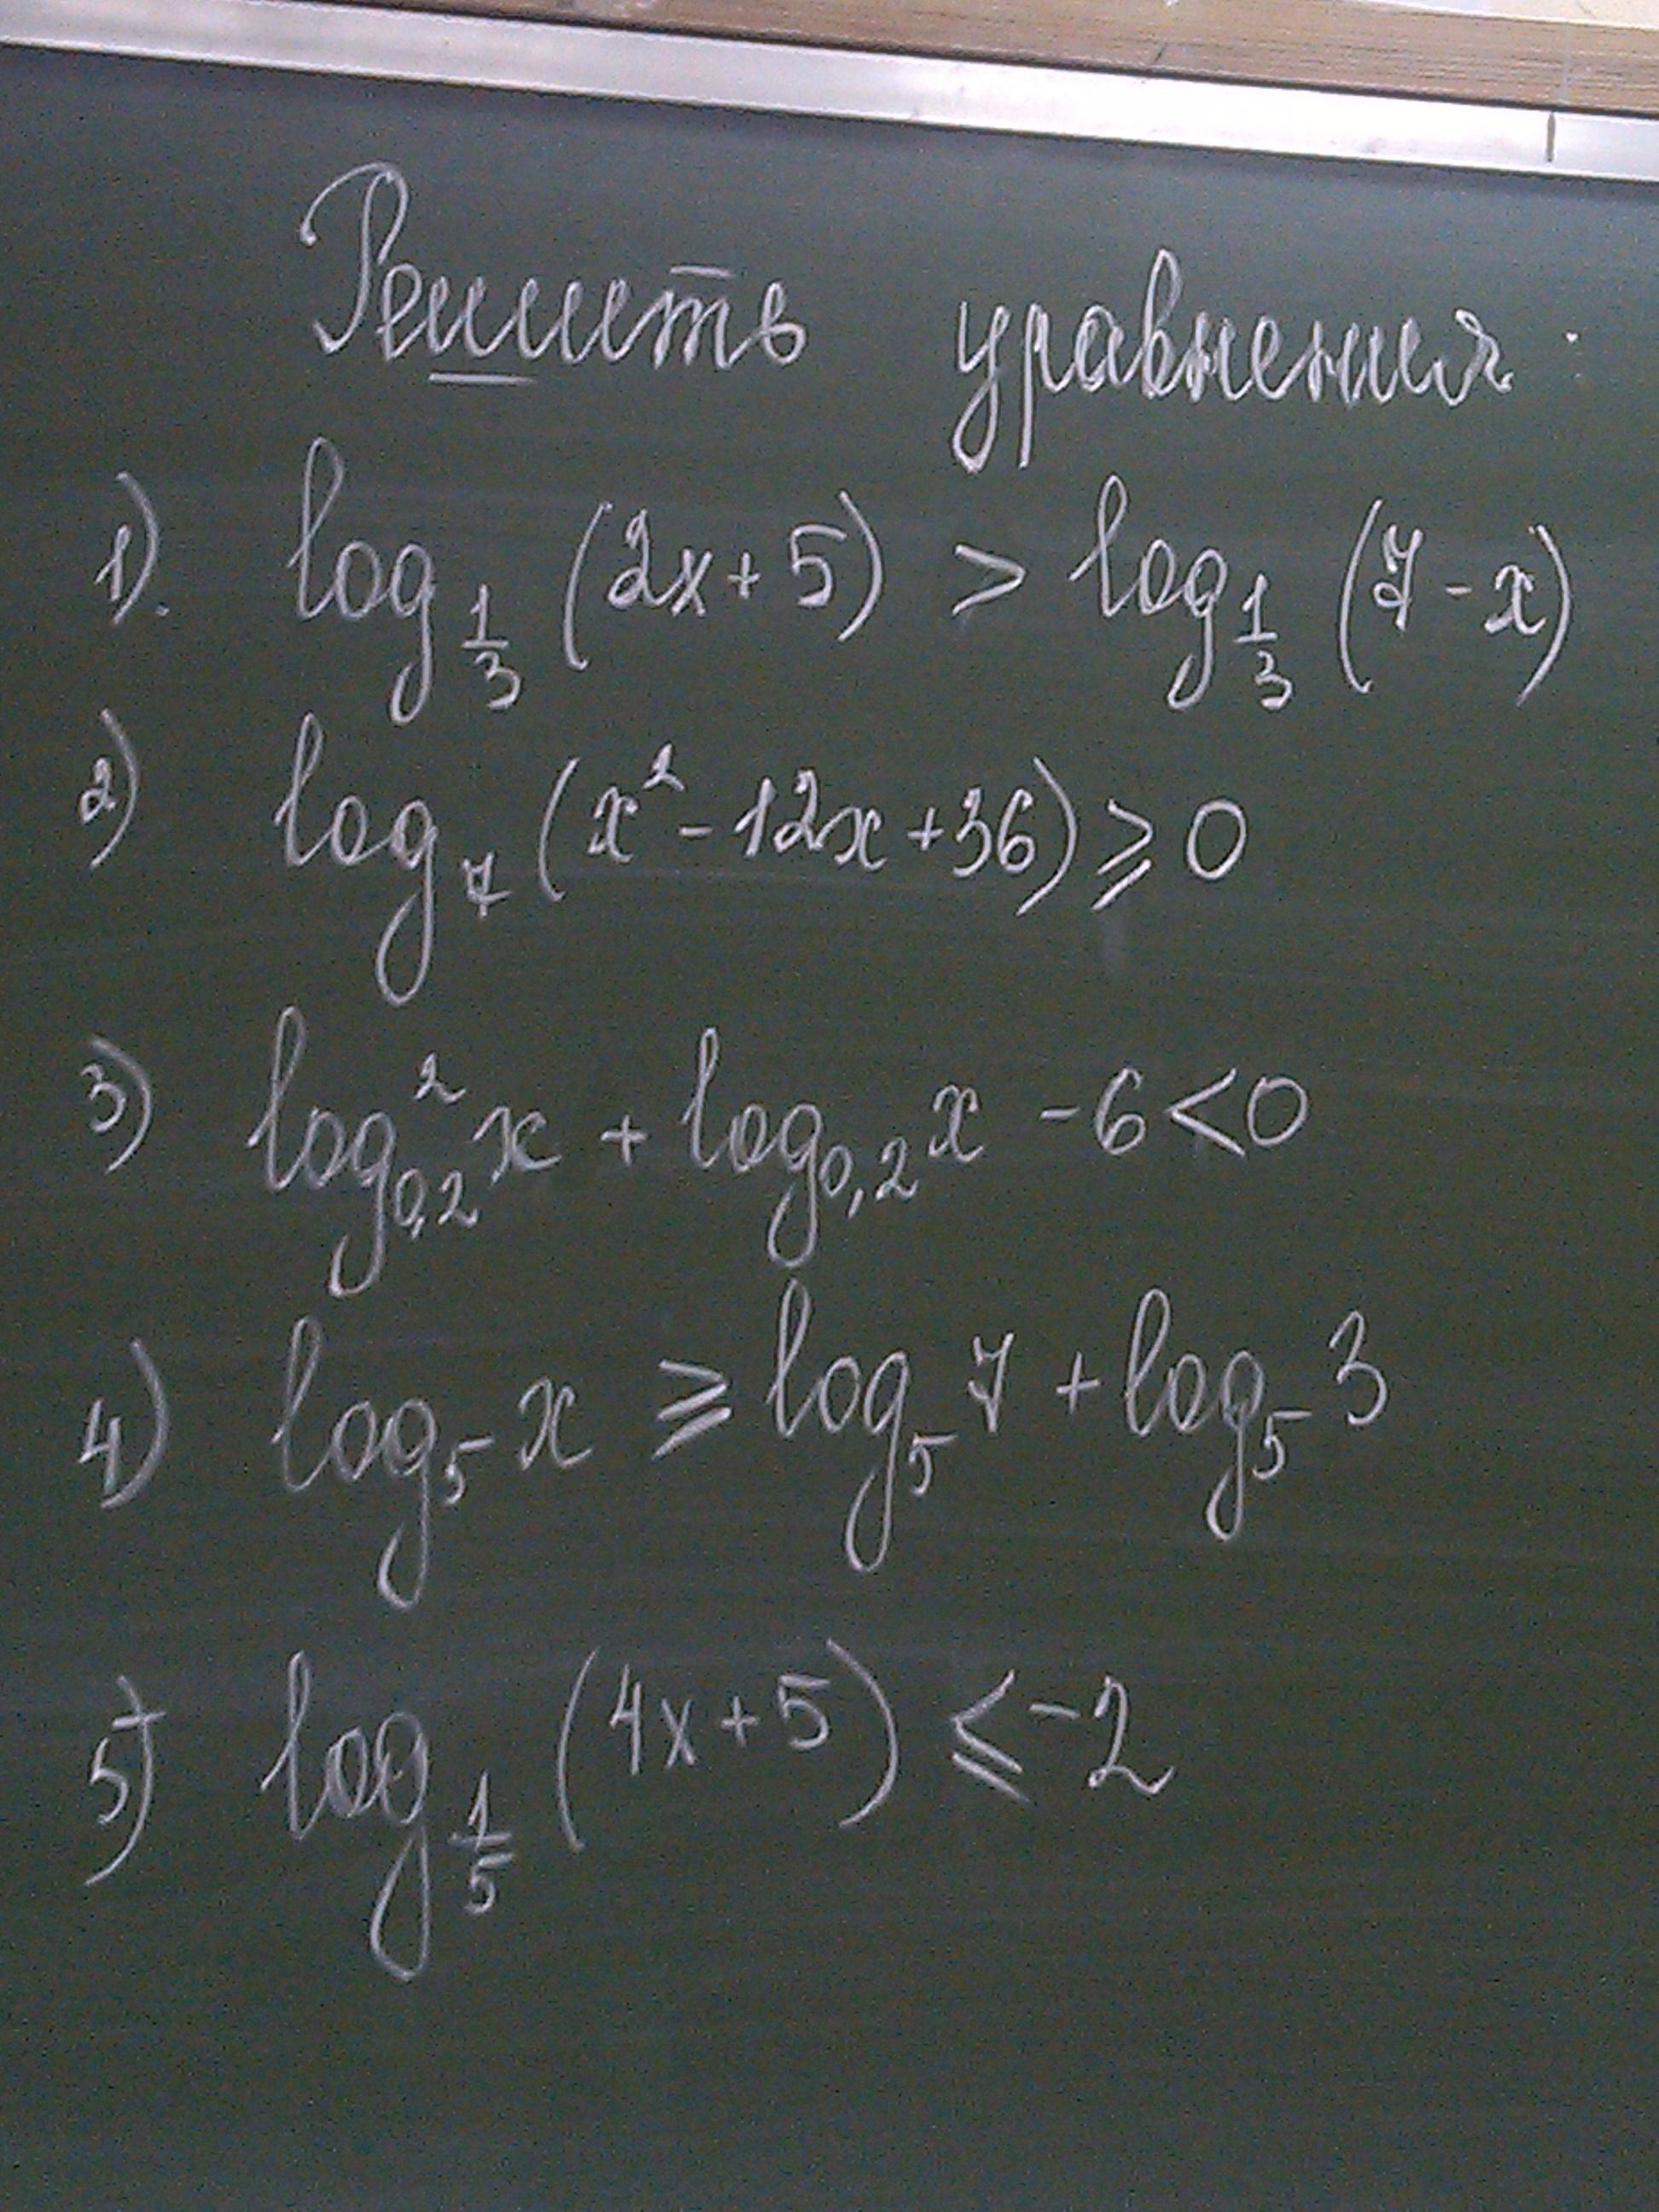 Решить уравнения:
1). log_{1/3} (2x+5) > log_{1/3} (7-x)
2) log_7 (x² - 12x + 36) ⩾ 0
3) log²_{0,2} x + log_{0,2} x - 6 < 0
4) log_5 x ⩾ log_5 7 + log_5 3
5) log_{1/5} (4x+5) ⩽ -2